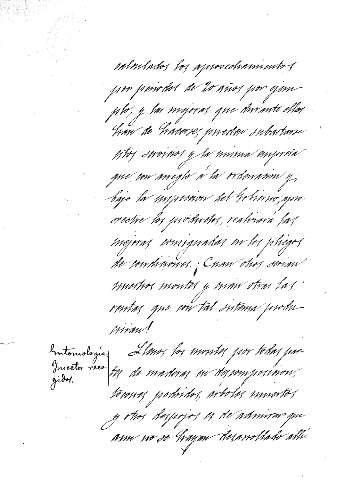 calculados los aprovechamientos
por periodos de 20 años por ejem-
plo, y las mejoras que durante ellos
han de hacerse, puedan subastarse
estos servicios y la misma empresa
que con arreglo á la ordenacion y
bajo la inspeccion del Gobierno, apro-
veche los productos, realizará las
mejoras consignadas en los pliegos
de condiciones. ¡Cuan otros serian
nuestros montes y cuan otras las
rentas que con tal sistema produ-
cirian!
Entomología
Insectos reco-
gidos.
Llenos los montes por todas par-
tes de maderas en descomposicion,
tocones podridos, árboles muertos
y otros despojos es de admirar que
aun no se hayan desarrollado alli